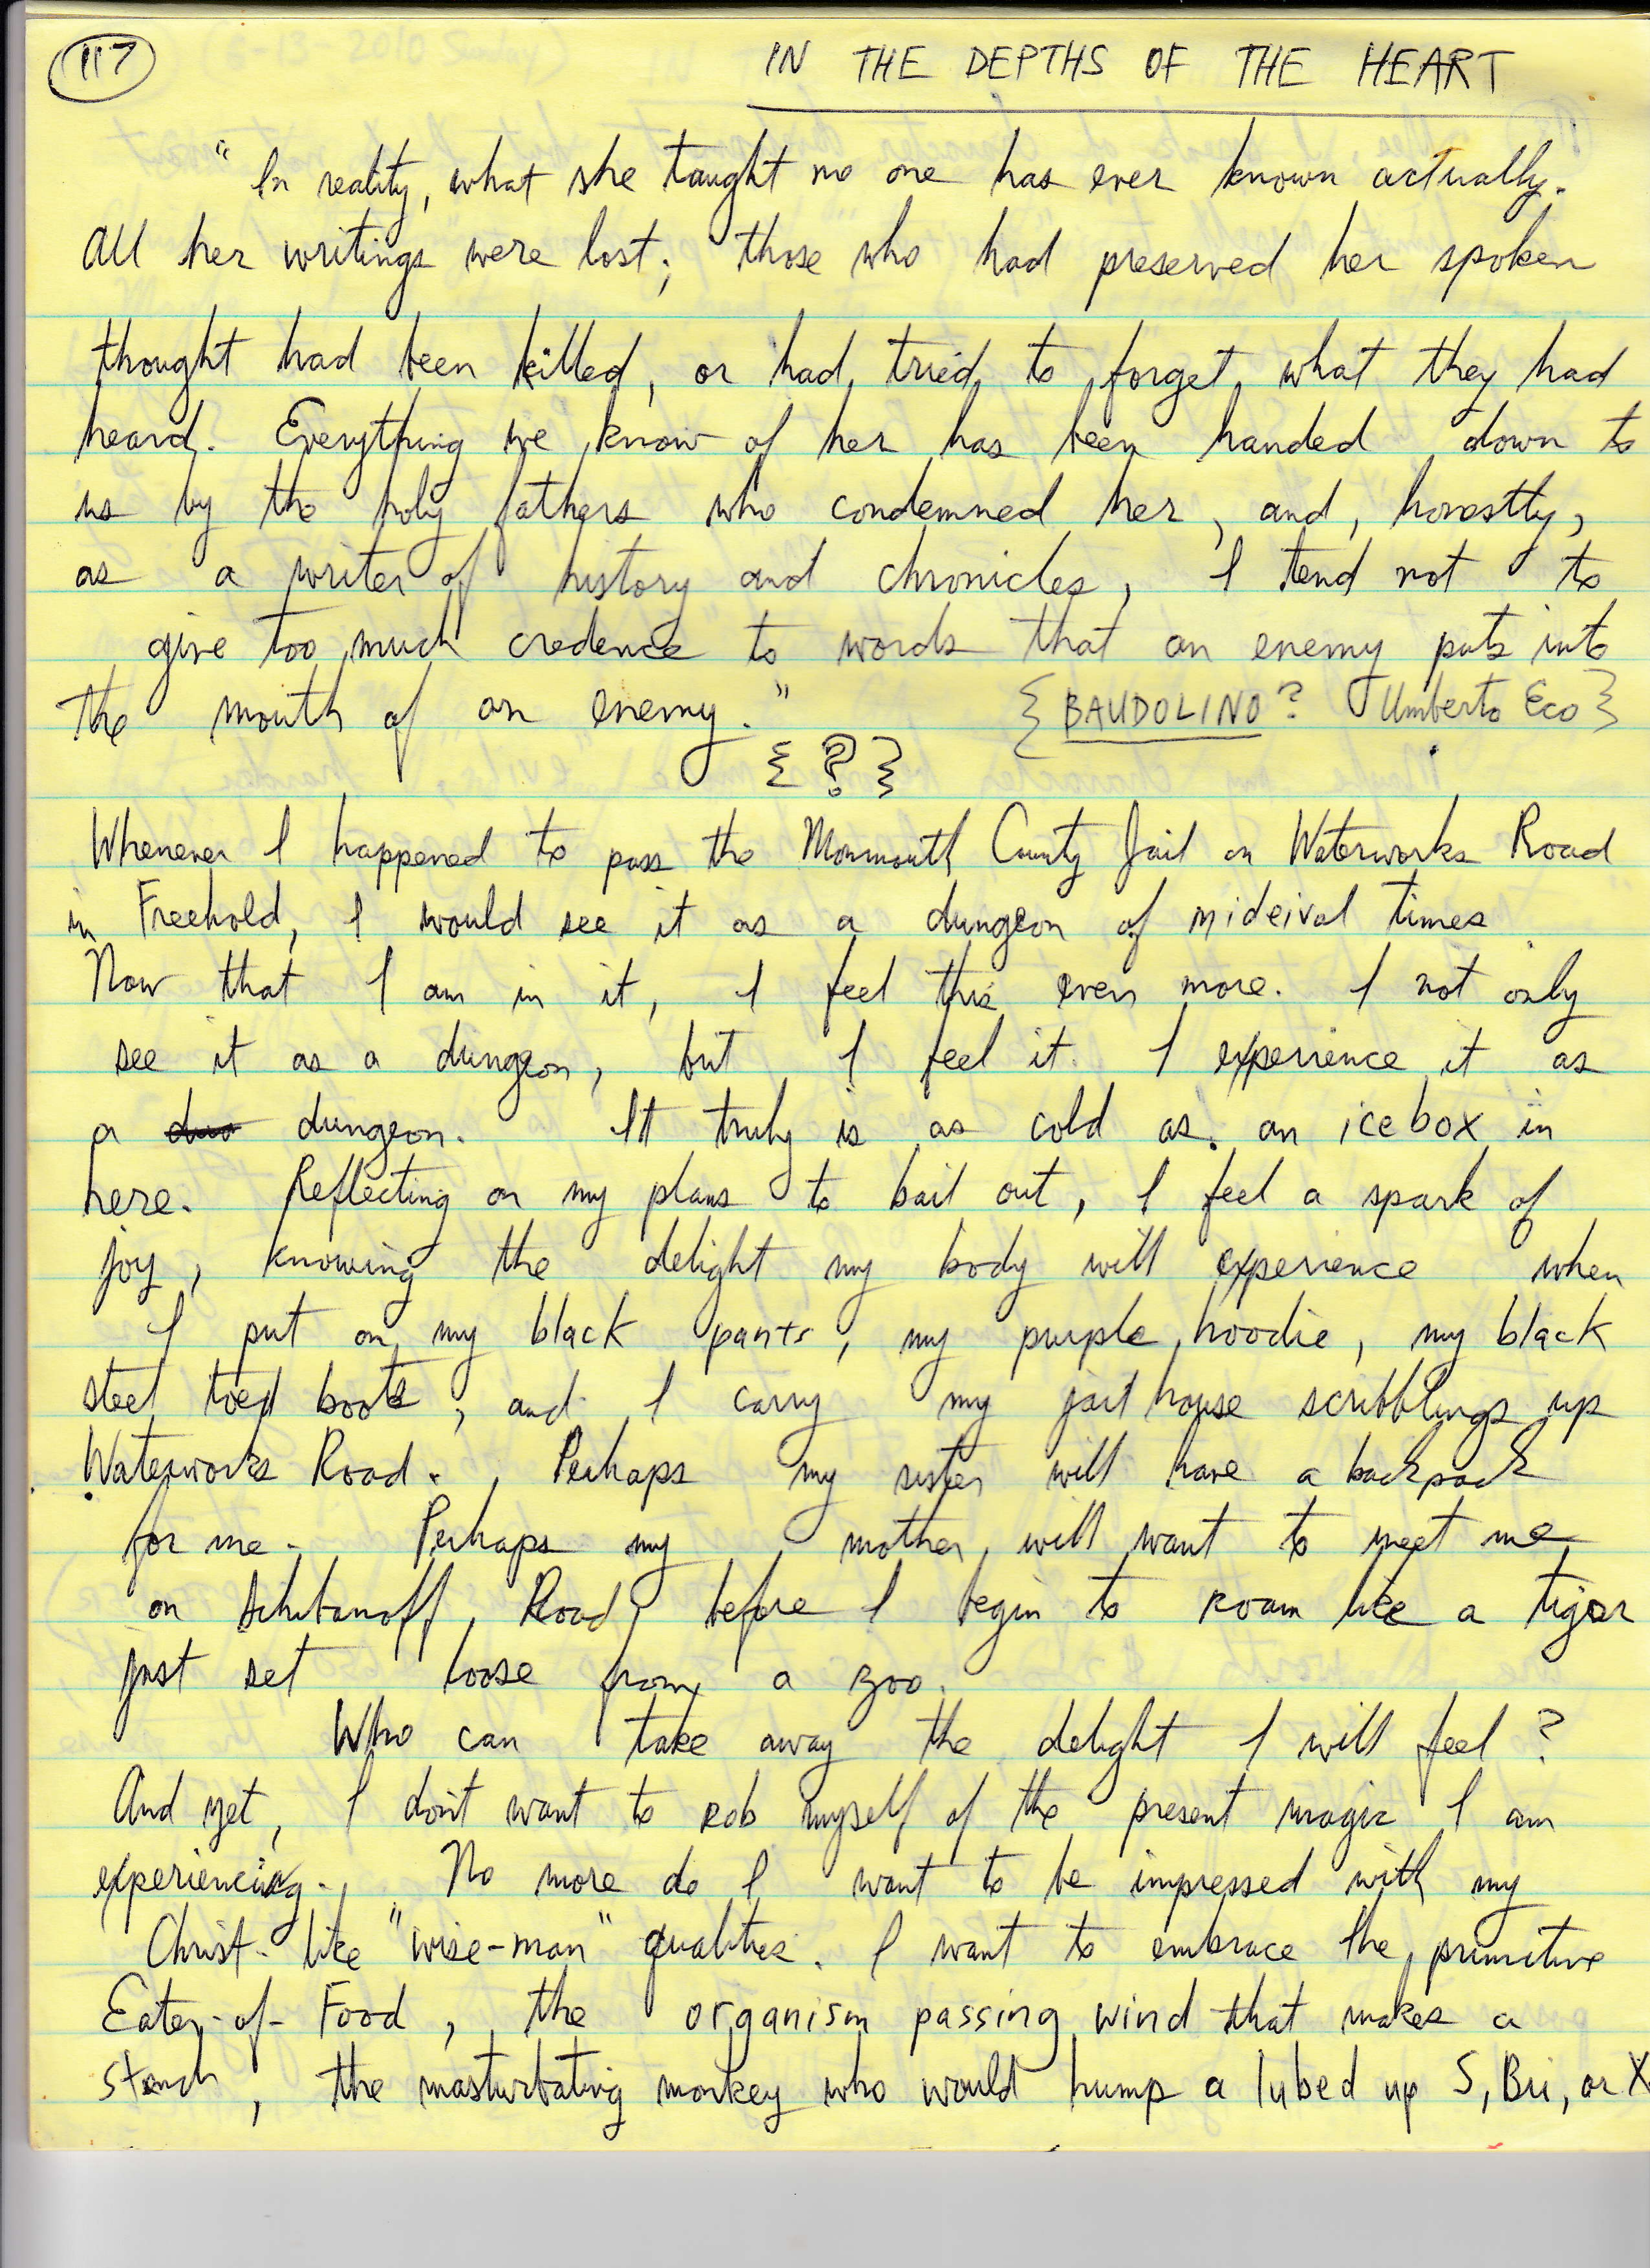 117
IN THE DEPTHS OF THE HEART
"In reality, what she taught no one has ever known actually.
All her writings were lost; those who had preserved her spoken
thought had been killed, or had tried to forget what they had
heard. Everything we know of her has been handed down to
us by the holy fathers who condemned her, and, honestly,
as a writer of history and chronicles, I tend not to
give too much credence to words that an enemy puts into
the mouth of an enemy."
{BAUDOLINO? Umberto Eco}
{?}
Whenever I happened to pass the Monmouth County Jail on Waterworks Road
in Freehold, I would see it as a dungeon of mideival times
Now that I am in it, I feel this even more. I not only
see it as a dungeon, but I feel it. I experience it as
a dungeon. It truly is as cold as an icebox in
here. Reflecting on my plans to bail out, I feel a spark of
joy, knowing the delight my body will experience when
I put on my black pants, my purple hoodie, my black
steel toed boots, and I carry my jail house scribblings up
Waterworks Road. Perhaps my sister will have a backpack
for me. Perhaps my mother will want to meet me
on Road before I begin to roam like a tiger
just set loose from a zoo.
Who can take away the delight I will feel?
And yet, I don't want to rob myself of the present magic I am
experiencing. No more do I want to be impressed with my
Christ-like "wise-man" qualities. I want to embrace the primitive
Eater-of-Food, the organism passing wind that makes a
stench, the masturbating monkey who would hump a lubed up S, Bri, or X